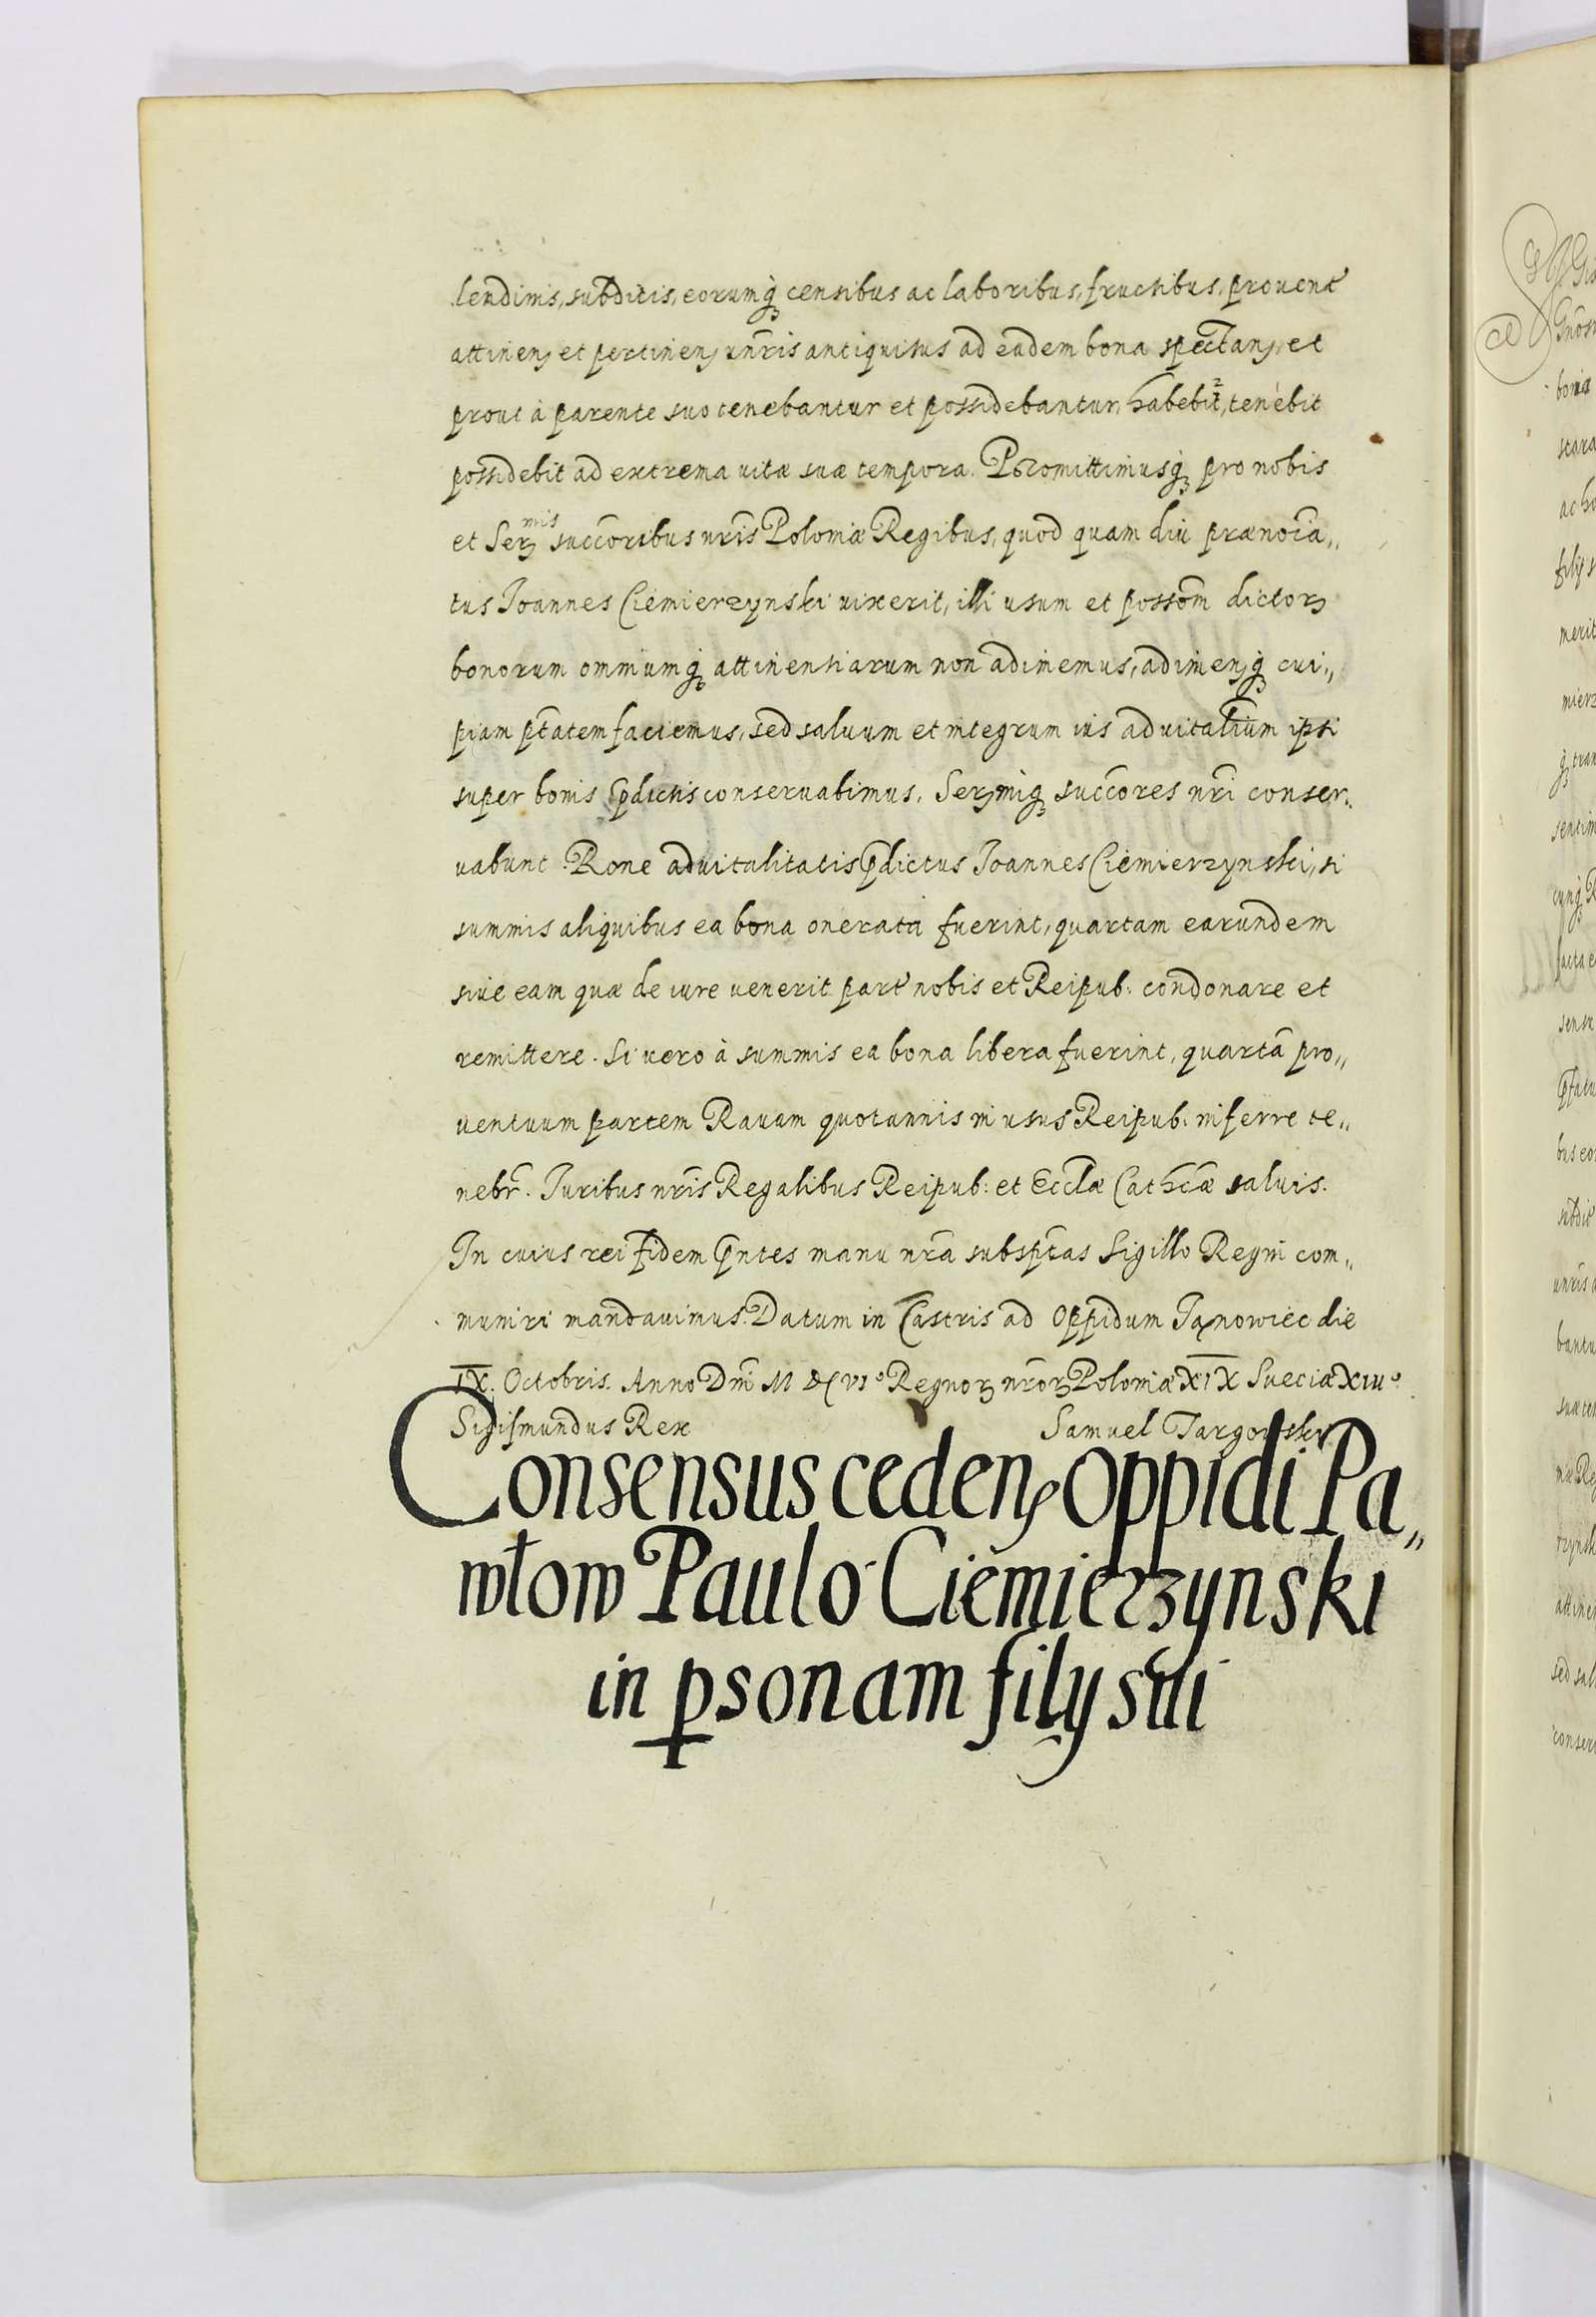 lendinis, subditis, eorumq̃ꝫ censibus ac laboribus, fructibus, prouent̃
attinenꝫ et pertinenꝫ vnr̃is antiquitus ad eadem bona spectanꝫ, et
prout à parente suo tenebantur et possidebantur, habebit, tenebit
possidebit ad extrema uitæ suæ tempora. Promittimusq̃ꝫ pro nobis
et Serꝫmis succ̃oribus nr̃is Poloniæ Regibus, quod quam diu prænoĩa„
tus Joannes Ciemierzynski uixerit, illi usum et possõm dictorꝫ
bonorum omniumq̃ꝫ attinentiarum non adimemus, adimenꝫq̃ꝫ cui„
piam pt̃atem faciemus, sed saluum et integrum ius aduitalium ipsi
super bonis p̃dictis conseruabimus, Serꝫmiq̃ꝫ succ̃ores nr̃i conser„
uabunt. Rõne aduitalitatis p̃dictus Joannes Ciemierzynski, si
summis aliquibus ea bona onerata fuerint, quartam earundem
siue eam quæ de iure uenerit part̃ nobis et Reipub: condonare et
remittere. Si uero à summis ea bona libera fuerint, quartã pro„
uentuum partem Rauam quotannis in usus Reipub: inferre te„
nebr̃. Juribus nr̃is Regalibus Reipub: et Eccl̃æ Cathc̃æ saluis.
In cuius rei fidem p̃ntes manu nr̃a subsp̃tas Sigillo Regni com„
muniri mandauimus. Datum in Castris ad Oppidum Janowiec die
IX. Octobris. Anno Dm̃i M DC VIº Regnorꝫ nr̃orꝫ Poloniæ XIX Sueciæ XIIIº
Sigismundus Rex Samuel Targowski
Consensus cedenꝫ Oppidi Pa„
włow Paulo Ciemierzynski
in ꝑsonam filij sui